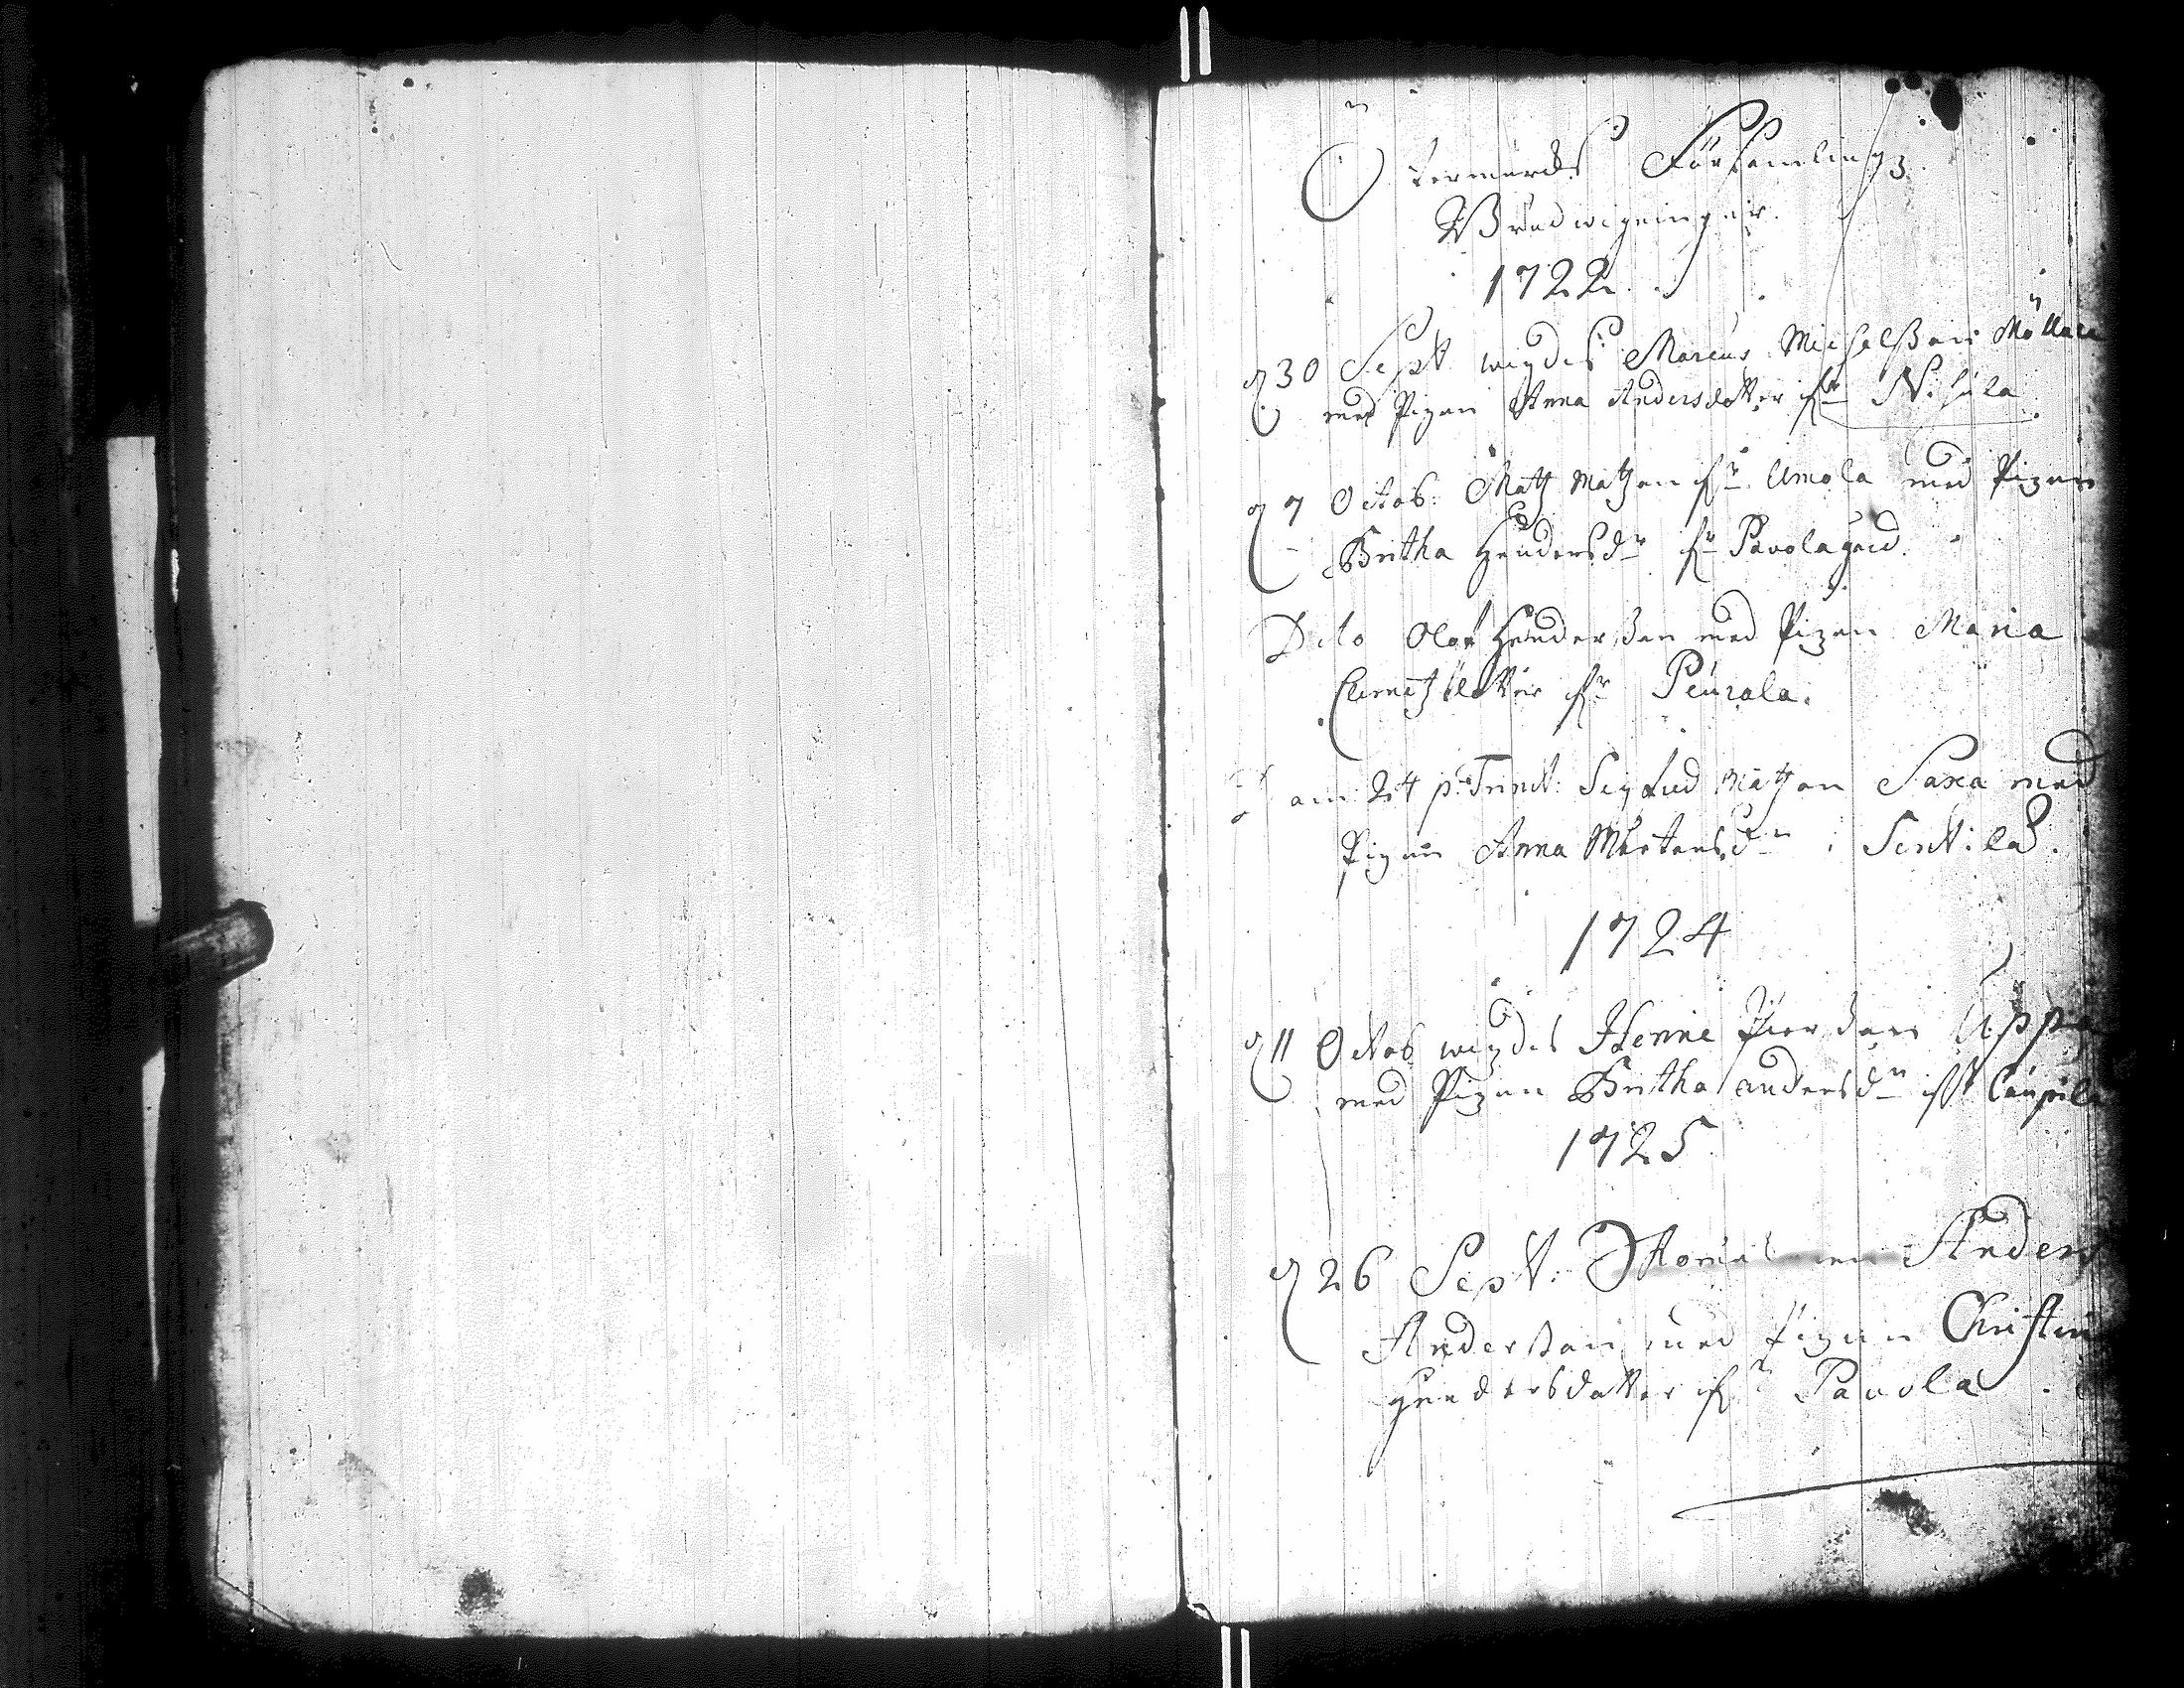 Östermarcks Församlings
Brudwigningar.
1722.
d 30 Sept wigdes Marcus Michelßon
med Pigan Anna Andersdotter fr Nisula
d 7 Octob: Matz Matzon fr Umola med Pigan
Britha Hendersdr fr Pavolagård.
Dito Olof Henderßon med Pigan Maria
Clemetzdotter fr Peurala.
om 24 p. Trinit: Sigfred Matzon Saxa med
Pigan Anna Mårtensdr i Sentilä.
1724
d 11 Octob wigdes Henric
med Pigan Britha andersdr
1725
d 26 Sept: Anders
Anderßon med Pigan Christin
Hendersdotter fr Pavola.